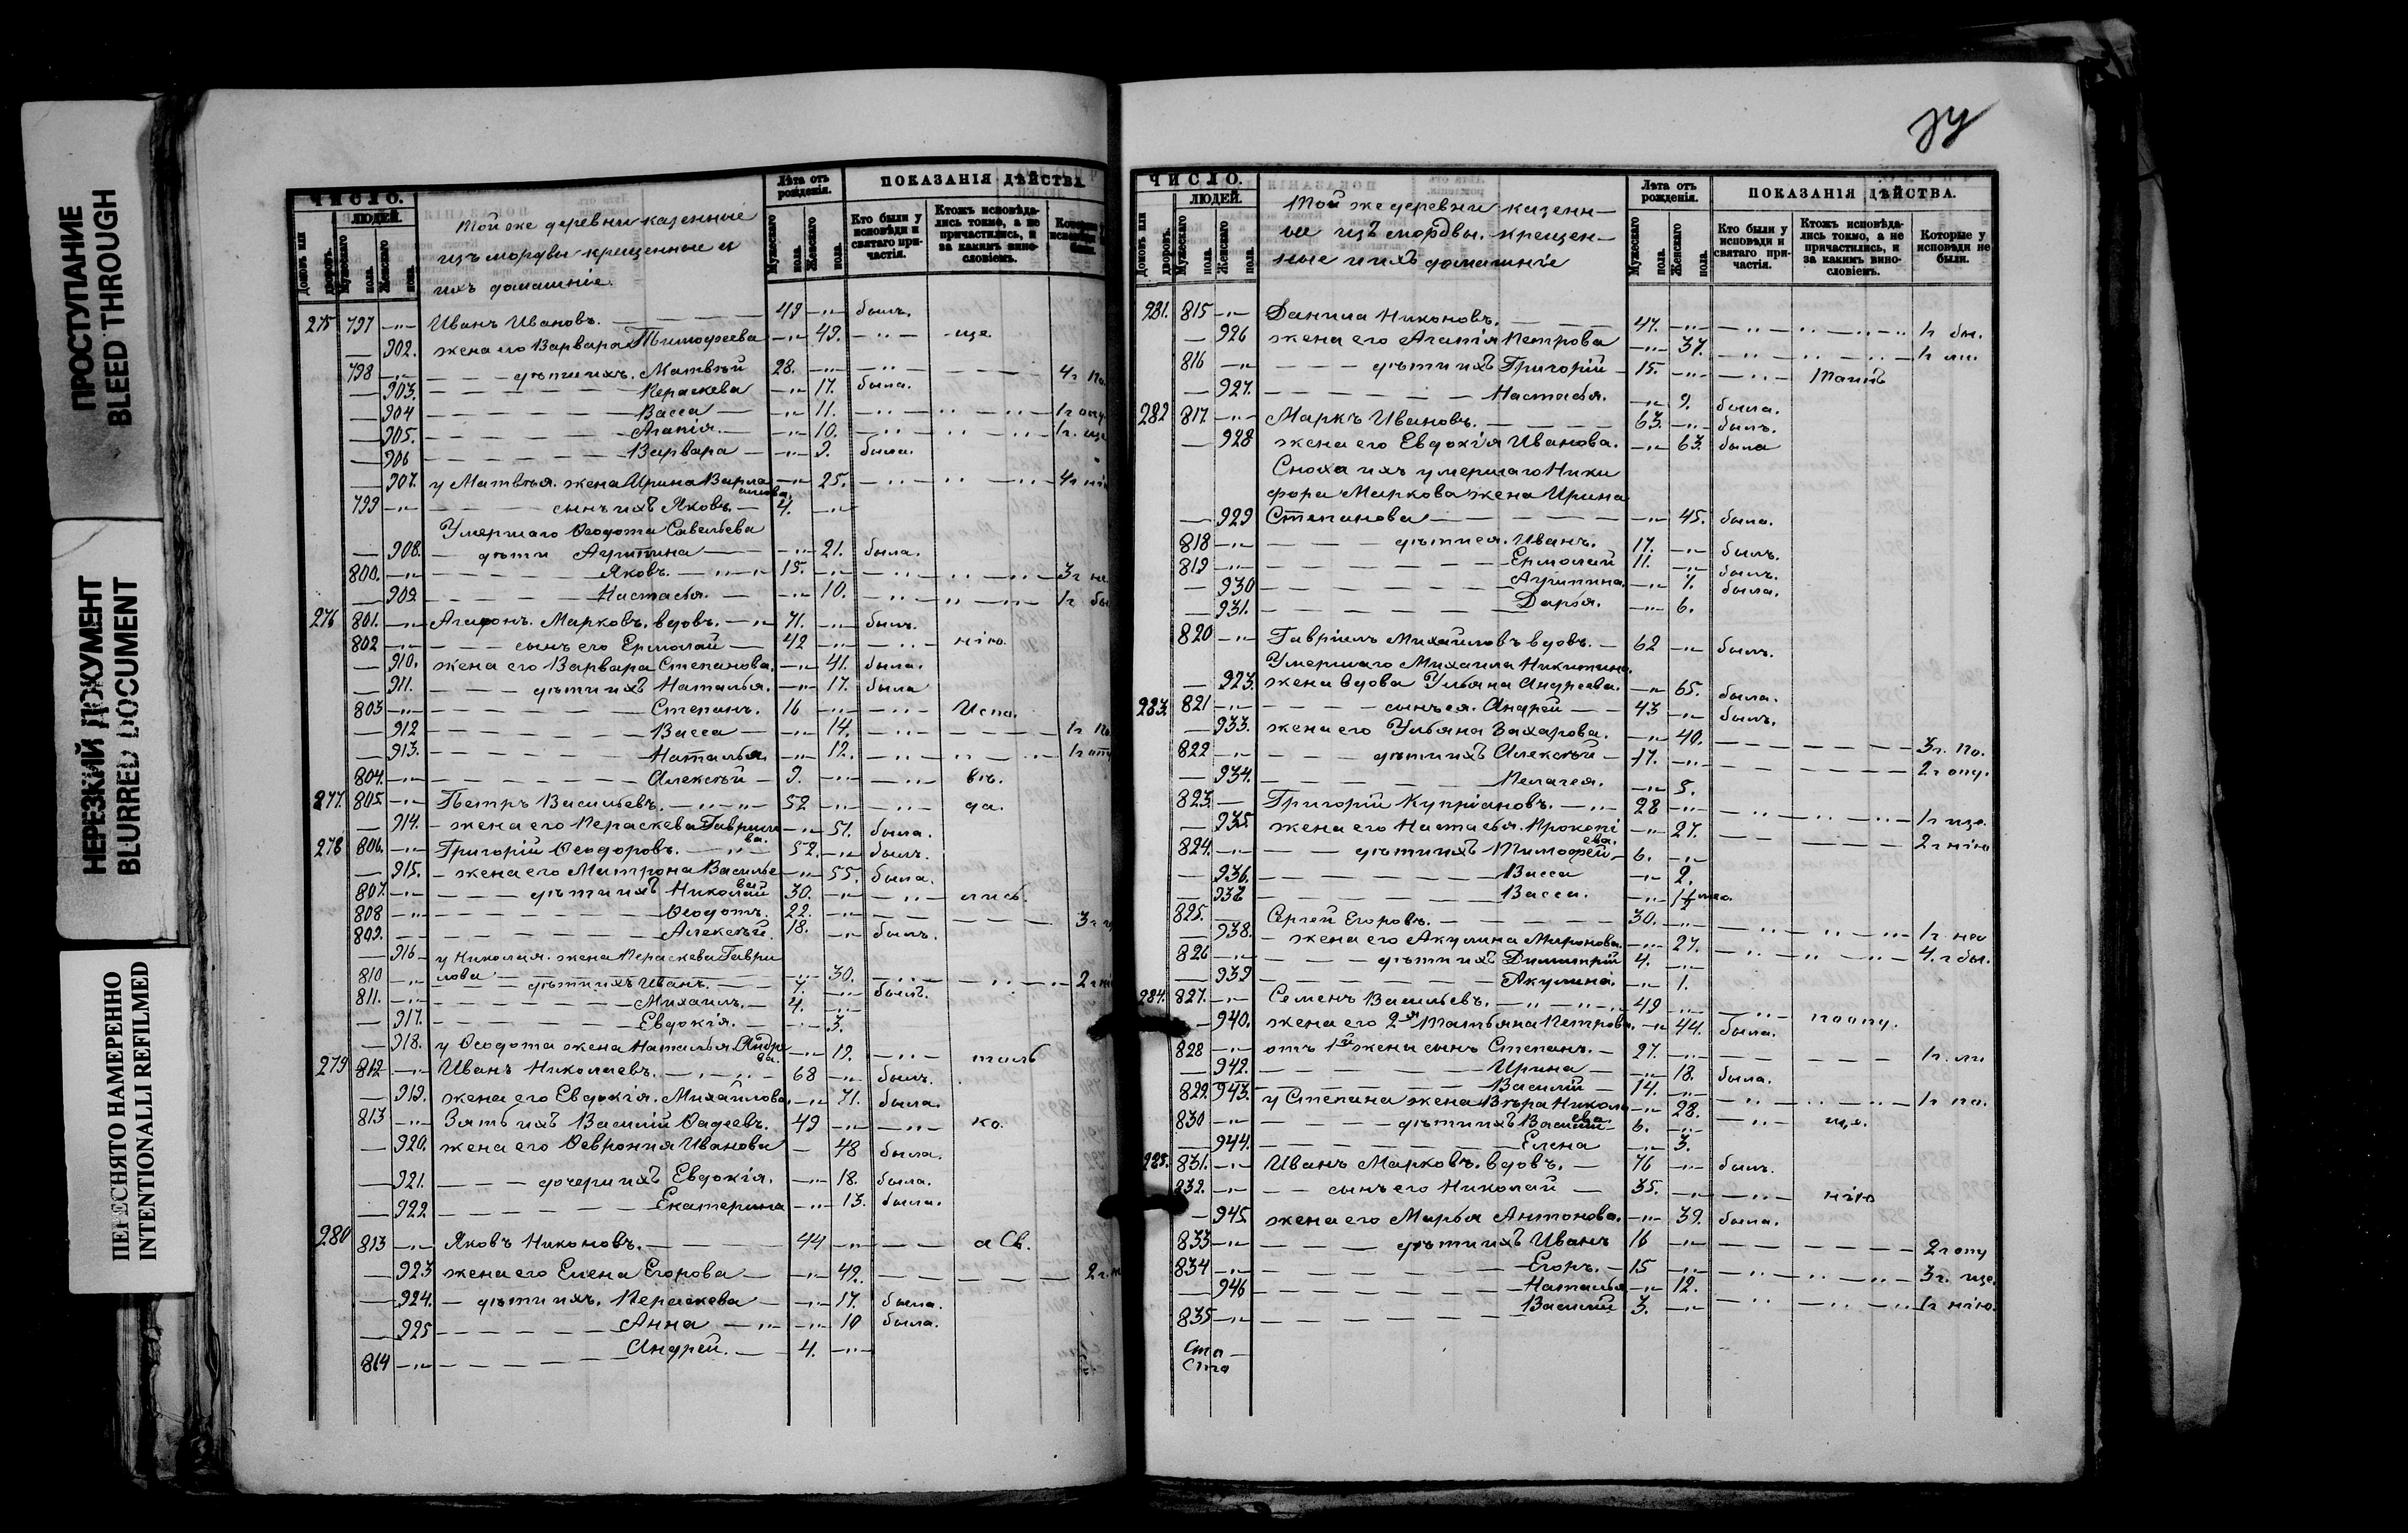 ПРОСТУПАНИЕ
BLEED THROUGH
НЕРЕЗКИЙ ДОКУМЕНТ
BLURRED DOCUMENT
ПЕРЕСНЯТО НАМЕРЕННО
INTENTIONALLI REFILMED
ЧИСЛО.
ЛЮДЕЙ.
Домовъ или дворовъ.
Мужескаго пола.
Женскаго пола.
Той же деревни казенные
изъ мордвы крещенные и
ихъ домашніе.
Лѣта отъ рожденія.
Мужескаго пола.
Женскаго пола.
ПОКАЗАНІЯ ДѢЙСТВА
Кто были у исповѣди и святаго причастія.
Ктожъ исповѣдались токмо, а не причастились, и за какимъ винословіемъ.
275 797 —"— Иванъ Ивановъ. 49 —"— былъ.
— 902. жена его Варвара Тимофеева —"— 49. —"— ще
798 —"— дѣти ихъ. Матвѣй 28. —"— —"— 4 г По.
— 903. Параскева —"— 17. была.
— 904 Васса —"— 11. —"— 1 г опу
— 905. Агапія. —"— 10. —"— 1 г. ще
— 906 Варвара —"— 9. была.
— 907. у Матвѣя. жена Ирина Варла —"— 25. —"— 4 г ні
амова.
799 —"— сынъ ихъ Яковъ. 4. —"—
Умершаго Ѳеодота Савельева
— 908. дѣти Агрипина —"— 21. была.
800. —"— Яковъ. 15. —"— —"— 3 г не
— 909. Настасья. —"— 10. —"— 1 г бы
276 801. —"— Агафонъ. Марковъ. вдовъ. 71. —"— былъ.
802 —"— сынъ его Ермолай 42 —"— —"— нію.
— 910. жена его Варвара Степанова. —"— 41. была.
— 911. дѣти ихъ Наталья. —"— 17. была
803 —"— Степанъ. 16 —"— —"— Испо.
— 912 Васса —"— 14. —"— 1 г По
— 913. Наталья. —"— 12. —"— 1 г опу
804. —"— Алексѣй 9. —"— —"— вѣ.
277. 805. —"— Петръ Васильевъ. 52 —"— —"— да.
— 914. жена его Параскева Гаврило —"— 51. была.
ва.
278 806. —"— Григорій Ѳеодоровъ. 52. —"— былъ.
— 915. жена его Матрона Василье —"— 55. была.
ва
807. —"— дѣти ихъ Николай 30. —"— —"— лись.
808 —"— Ѳеодотъ. 22. —"— 3 г
809. Алексѣй. 18. —"— былъ.
— 916 у Николая. жена Параскева Гаври
лова —"— 30. —"— 2 г ні
810 —"— дѣти ихъ Иванъ. 7. —"— былъ.
811. —"— Михаилъ. 4. —"—
— 917. Евдокія. —"— 3.
— 918. у Ѳеодота жена Наталья Андре —"— 19. —"— толь
ва.
279 812 —"— Иванъ Николаевъ. 68 —"— былъ.
— 919. жена его Евдокія. Михайлова. —"— 71. была.
813 —"— Зять ихъ Василій Ѳадеевъ. 49 —"— —"— ко.
— 920. жена его Ѳевронія Иванова — 48 была.
— 921. дочери ихъ Евдокія. —"— 18. была.
— 922 Екатерина —"— 13. была.
280 813 —"— Яковъ Никоновъ. 44 —"— а Св.
— 923 жена его Елена Егорова —"— 49. 2 г.
— 924. дѣти ихъ. Параскева —"— 17. была.
— 925 Анна —"— 10 была.
814 —"— Андрей. 4. —"—
ЧИСЛО.
ЛЮДЕЙ.
Домовъ или дворовъ.
Мужескаго пола.
Женскаго пола.
Той же деревни казенн—
ые изъ мордвы. крещен—
ные и ихъ домашніе
Лѣта отъ рожденія.
Мужескаго пола.
Женскаго пола.
ПОКАЗАНІЯ ДѢЙСТВА.
Кто были у исповѣди и святаго причастія.
Ктожъ исповѣдались токмо, а не причастились, и за какимъ винословіемъ.
Которые у исповѣди не были.
281. 815 —"— Данила Никоновъ. 47. —"— —"— 1 г бы.
— 926 жена его Агапія Петрова —"— 37. —"— 1 г ли.
816 —"— дѣти ихъ Григорій 15. —"— —"— Таинъ
— 927. Настасья. —"— 9. была.
282 817. —"— Маркъ Ивановъ. 63. —"— былъ.
— 928 жена его Евдокія Иванова. —"— 63. была
Сноха ихъ умершаго Ники
фора Маркова жена Ирина
— 929 Степанова —"— 45. была.
818 —"— дѣти ея. Иванъ. 17. —"— былъ.
819 —"— Ермолай 11. —"— былъ.
— 930 Агрипина. —"— 7. была.
— 931. Дарья. —"— 6.
820 —"— Гавріилъ Михайловъ вдовъ. 62 —"— былъ.
Умершаго Михаила Никитина.
— 923. жена вдова Ульяна Андреева. —"— 65. была.
283. 821 —"— сынъ ея. Андрей 43 —"— былъ.
— 933. жена его Ульяна Захарова. —"— 40. 3 г. По.
822 —"— дѣти ихъ Алексѣй 17. —"— 2 г опу.
— 934. Пелагея. —"— 5.
823. — Григорій Купріановъ. 28 —"— 1 г ще.
— 935. жена его Настасья. Прокопі —"— 27. 2 г нію
ева.
824. —"— дѣти ихъ Тимофей 6. —"—
— 936. Васса —"— 2.
— 937 Васса.
825. Сергей Егоровъ. 30. —"— 1 г. не
— 938. жена его Акулина Миронова. —"— 27. 4. г бы.
826 —"— дѣти ихъ Димитрій 4. —"—
— 939 Акулина. —"— 1.
284. 827. —"— Семенъ Васильевъ. 49 —"— —"— по опу.
— 940. жена его 2я Татьяна Петрова. —"— 44. была.
828 —"— отъ 1й жены сынъ Степанъ. 27. —"— 1 г. ли
— 942. Ирина —"— 18. была.
829. Василій 14. —"— 1 г по.
943. у Степана жена Вѣра Никола —"— 28. —"— ще.
ева.
830 —"— дѣти ихъ Василій 6. —"—
— 944. Елена —"— 3.
285. 831. —"— Иванъ Марковъ. вдовъ. 76 —"— былъ.
832. —"— сынъ его Николай 35. —"— —"— нію
— 945. жена его Марья Антонова. —"— 39. была.
833 —"— дѣти ихъ Иванъ 16 —"— 2 г опу
834 —"— Егоръ. 15 —"— 3 г. ще.
— 946 Наталья —"— 12. 1 г нію.
835 —"— Василій 3. —"—